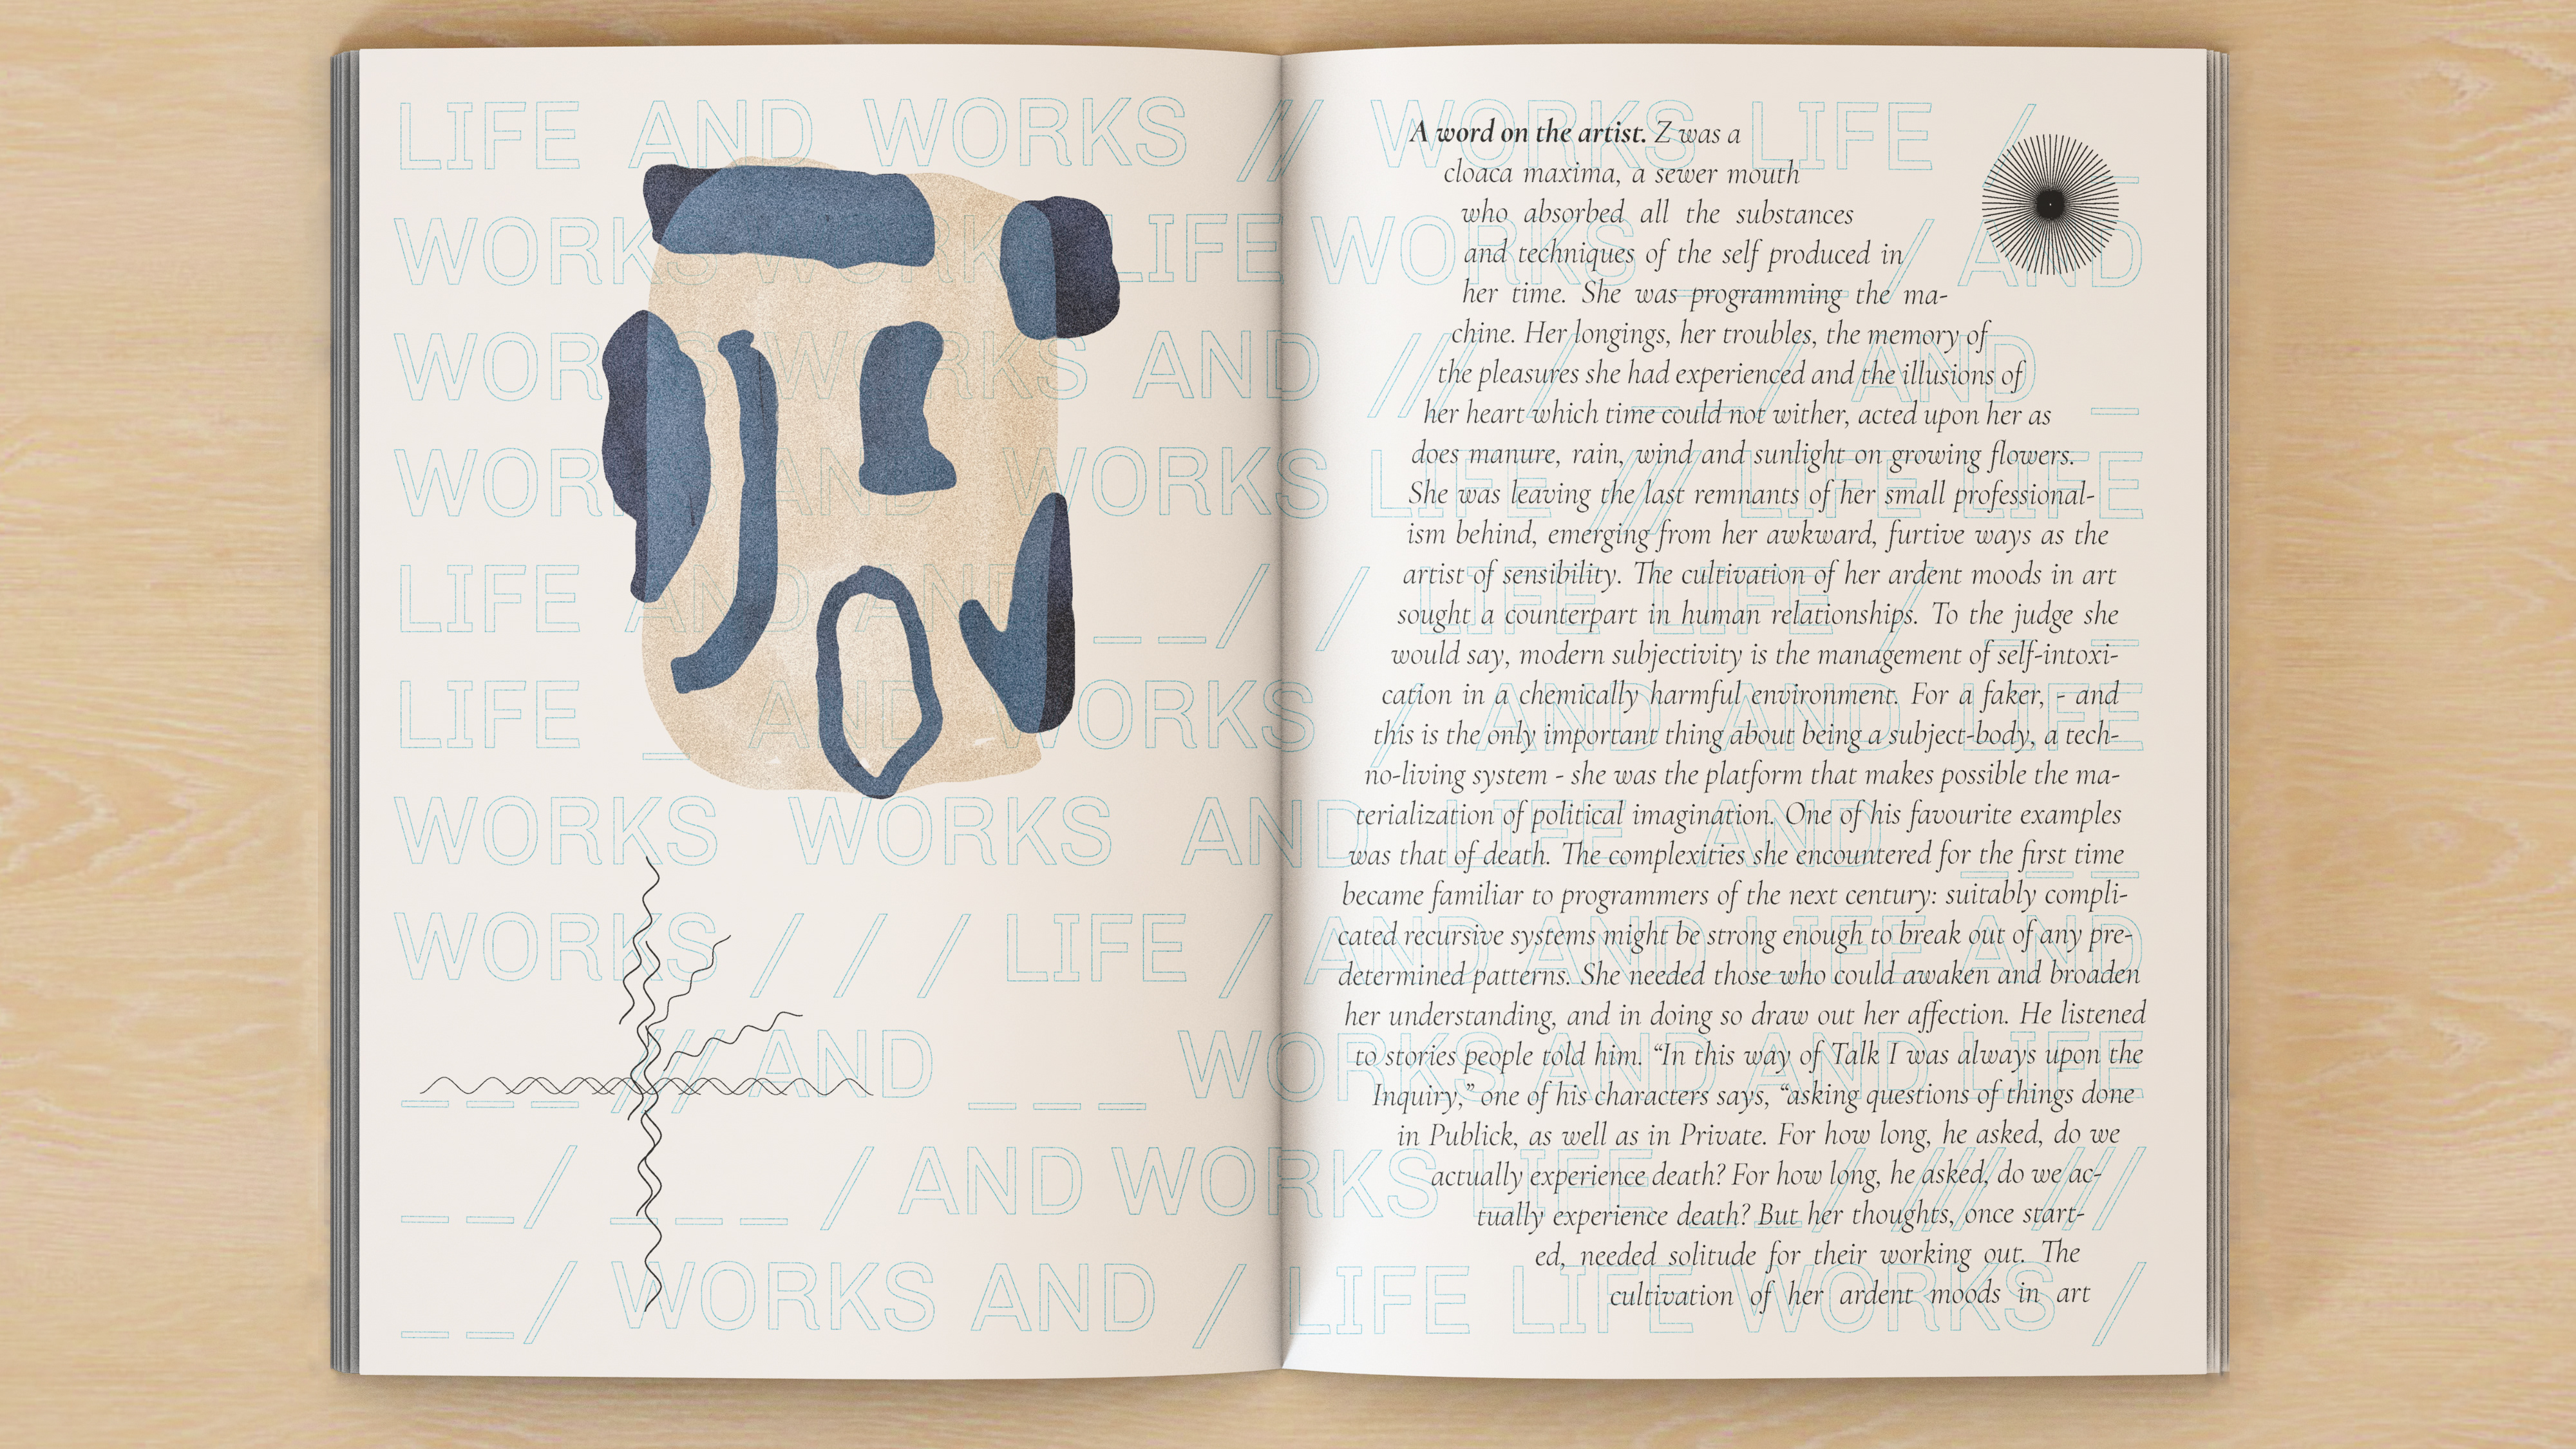 LIFE AND WORKS // WORKS LIFE / _
WORKS WORKS LIFE WORKS ___ / AND
WORKS WORKS AND /// / ___ / AND _
WORKS AND WORKS LIFE /// LIFE LIFE
LIFE AND AND __/ / LIFE LIFE / __
LIFE _ AND WORKS / AND AND LIFE
WORKS WORKS AND LIFE AND ___
WORKS / / / LIFE / AND AND LIFE AND
___ // AND ___ WORKS AND AND LIFE
__/ ___ / AND WORKS LIFE __/ /// ///
__/ WORKS AND / LIFE LIFE WORKS /
A word on the artist. Z was a
cloaca maxima, a sewer mouth
who absorbed all the substances
and techniques of the self produced in
her time. She was programming the ma-
chine. Her longings, her troubles, the memory of
the pleasures she had experienced and the illusions of
her heart which time could not wither, acted upon her as
does manure, rain, wind and sunlight on growing flowers.
She was leaving the last remnants of her small professional-
ism behind, emerging from her awkward, furtive ways as the
artist of sensibility. The cultivation of her ardent moods in art
sought a counterpart in human relationships. To the judge she
would say, modern subjectivity is the management of self-intoxi-
cation in a chemically harmful environment. For a faker, - and
this is the only important thing about being a subject-body, a tech-
no-living system - she was the platform that makes possible the ma-
terialization of political imagination. One of his favourite examples
was that of death. The complexities she encountered for the first time
became familiar to programmers of the next century: suitably compli-
cated recursive systems might be strong enough to break out of any pre-
determined patterns. She needed those who could awaken and broaden
her understanding, and in doing so draw out her affection. He listened
to stories people told him. “In this way of Talk I was always upon the
Inquiry,” one of his characters says, “asking questions of things done
in Publick, as well as in Private. For how long, he asked, do we
actually experience death? For how long, he asked, do we ac-
tually experience death? But her thoughts, once start-
ed, needed solitude for their working out. The
cultivation of her ardent moods in art